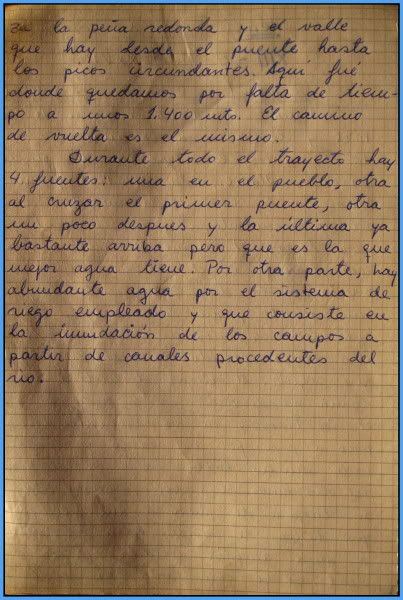 za la peña redonda y el valle
que hay desde el puente hasta
los picos circundantes. Aquí fué
donde quedamos por falta de tiem-
po a unos 1.400 mts. El camino
de vuelta es el mismo.
Durante todo el trayecto hay
4 fuentes: una en el pueblo, otra
al cruzar el primer puente, otra
un poco despues y la última ya
bastante arriba pero que es la que
mejor agua tiene. Por otra parte, hay
abundante agua por el sistema de
riego empleado y que consiste en
la inundación de los campos a
partir de canales procedentes del
rio.